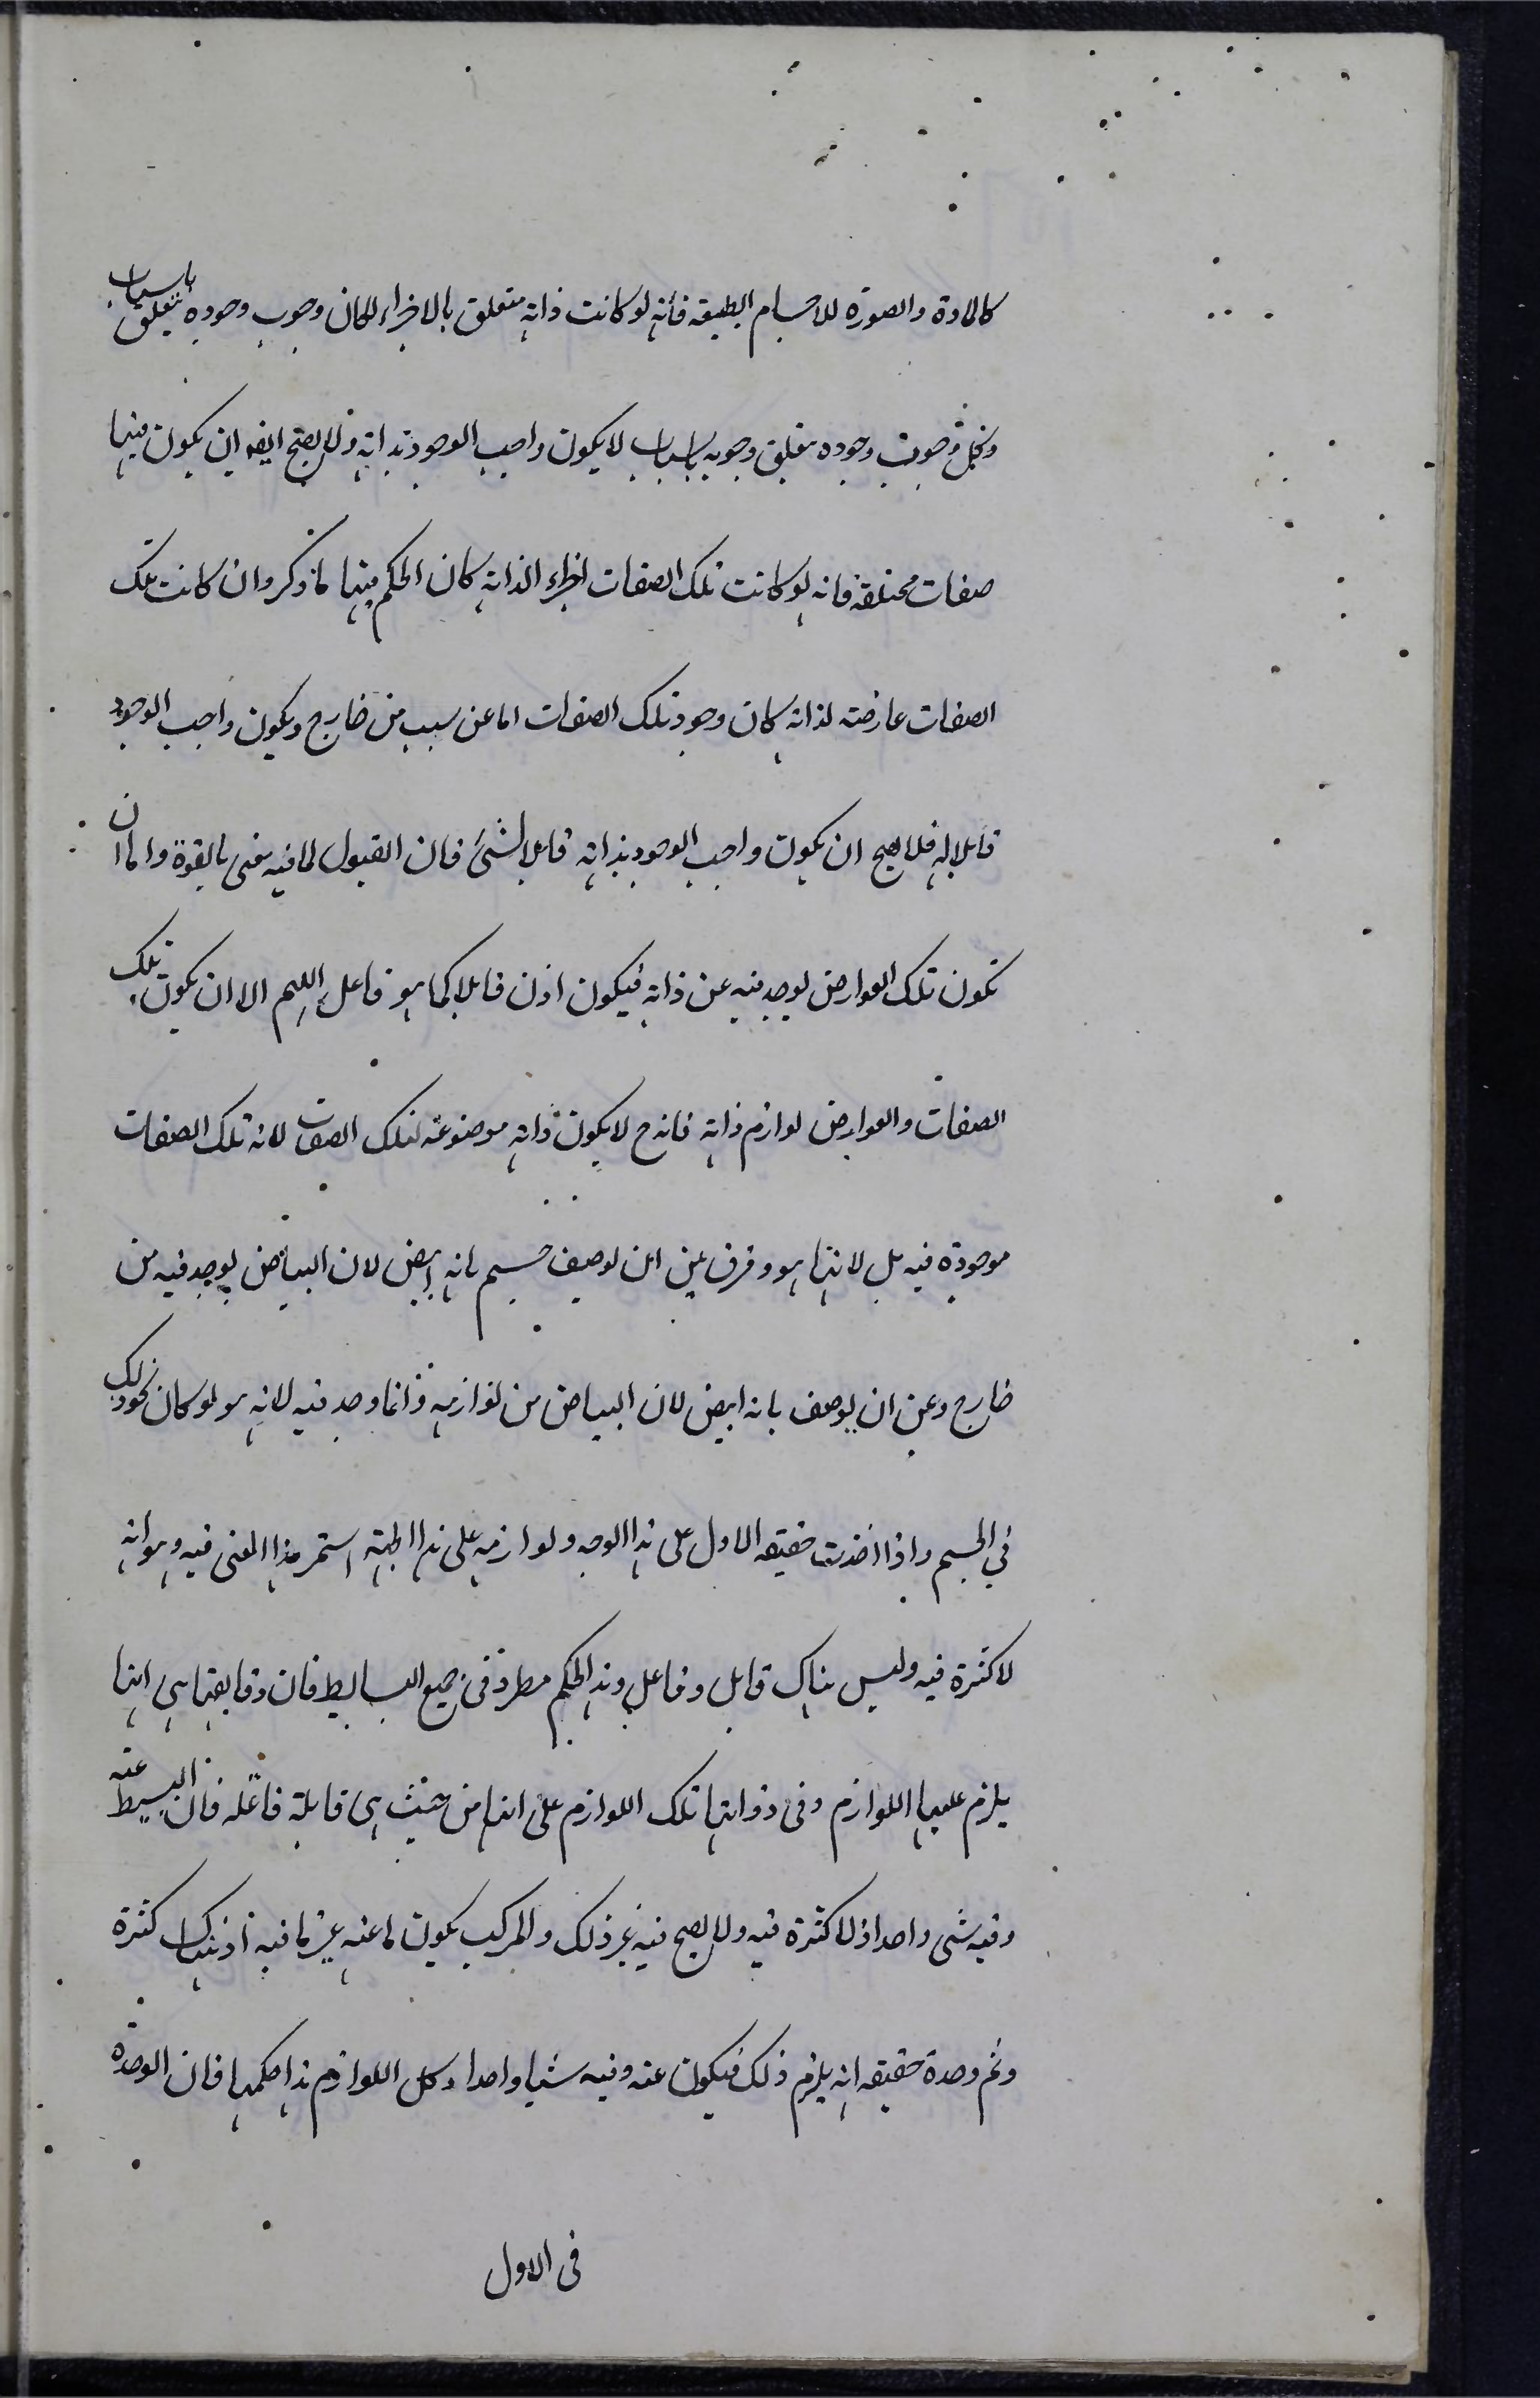 كالمادة والصورة للاجسام الطبيعة فانه لو كانت ذاته متعلق بالاجزاء لكان وجوب وجوده يتعلق باسباب
وكل وجوب وجوده متعلق وجوبه باسباب لا يكون واجب الوجود بذاته ولا يصح ايضا ان يكون فيها
صفات مختلفة فانه لو كانت تلك الصفات اجزاء الذاته كان الحكم فيها ما ذكر وان كانت تلك
الصفات عارضته لذاته كان وجود تلك الصفات اما عن سبب من خارج ويكون واجب الوجود
قابلا له فلا يصح ان يكون واجب الوجود بذاته قابلا لشئ فان القبول لما فيه معنى بالقوة واما ان
تكون تلك العوارض يوجد فيه عن ذاته فيكون اذن قابلا كما هو فاعل اللهم الا ان يكون تلك
الصفات والعوارض لوازم ذاته فانه ح لا يكون ذاته موضوعة لتلك الصفات لانه تلك الصفات
موجودة فيه بل لانها هو وفرق بين ان يوصف جسم بانه ابيض لان البياض يوجد فيه من
خارج وبين ان يوصف بانه ابيض لان البياض من لوازمه وانما وجد فيه لانه هو لو كان يجوز ذلك
في الجسم واذا اخذت حقيقه الاول على هذا الوجه ولوازمه على هذا الجهة استمر هذا المعنى فيه وهو انه
لا كثرة فيه وليس هناك قابل وفاعل وهذا الحكم مطرد في جميع البسايط فان حقايقها هي انها
يلزم عليها اللوازم وفي ذواتها تلك اللوازم على انها من حيث هي قابلة فاعله فان البسيط عنه
وفيه شى واحد اذ لا كثرة فيه ولا يصح فيه غير ذلك والمركب يكون ما عنه غير ما فيه اذ هناك كثرة
وثم وحدة حقيقه انه يلزم ذلك فيكون عنه وفيه شيا واحدا وكل اللوازم هذا حكمها فان الوحدة
فى الاول